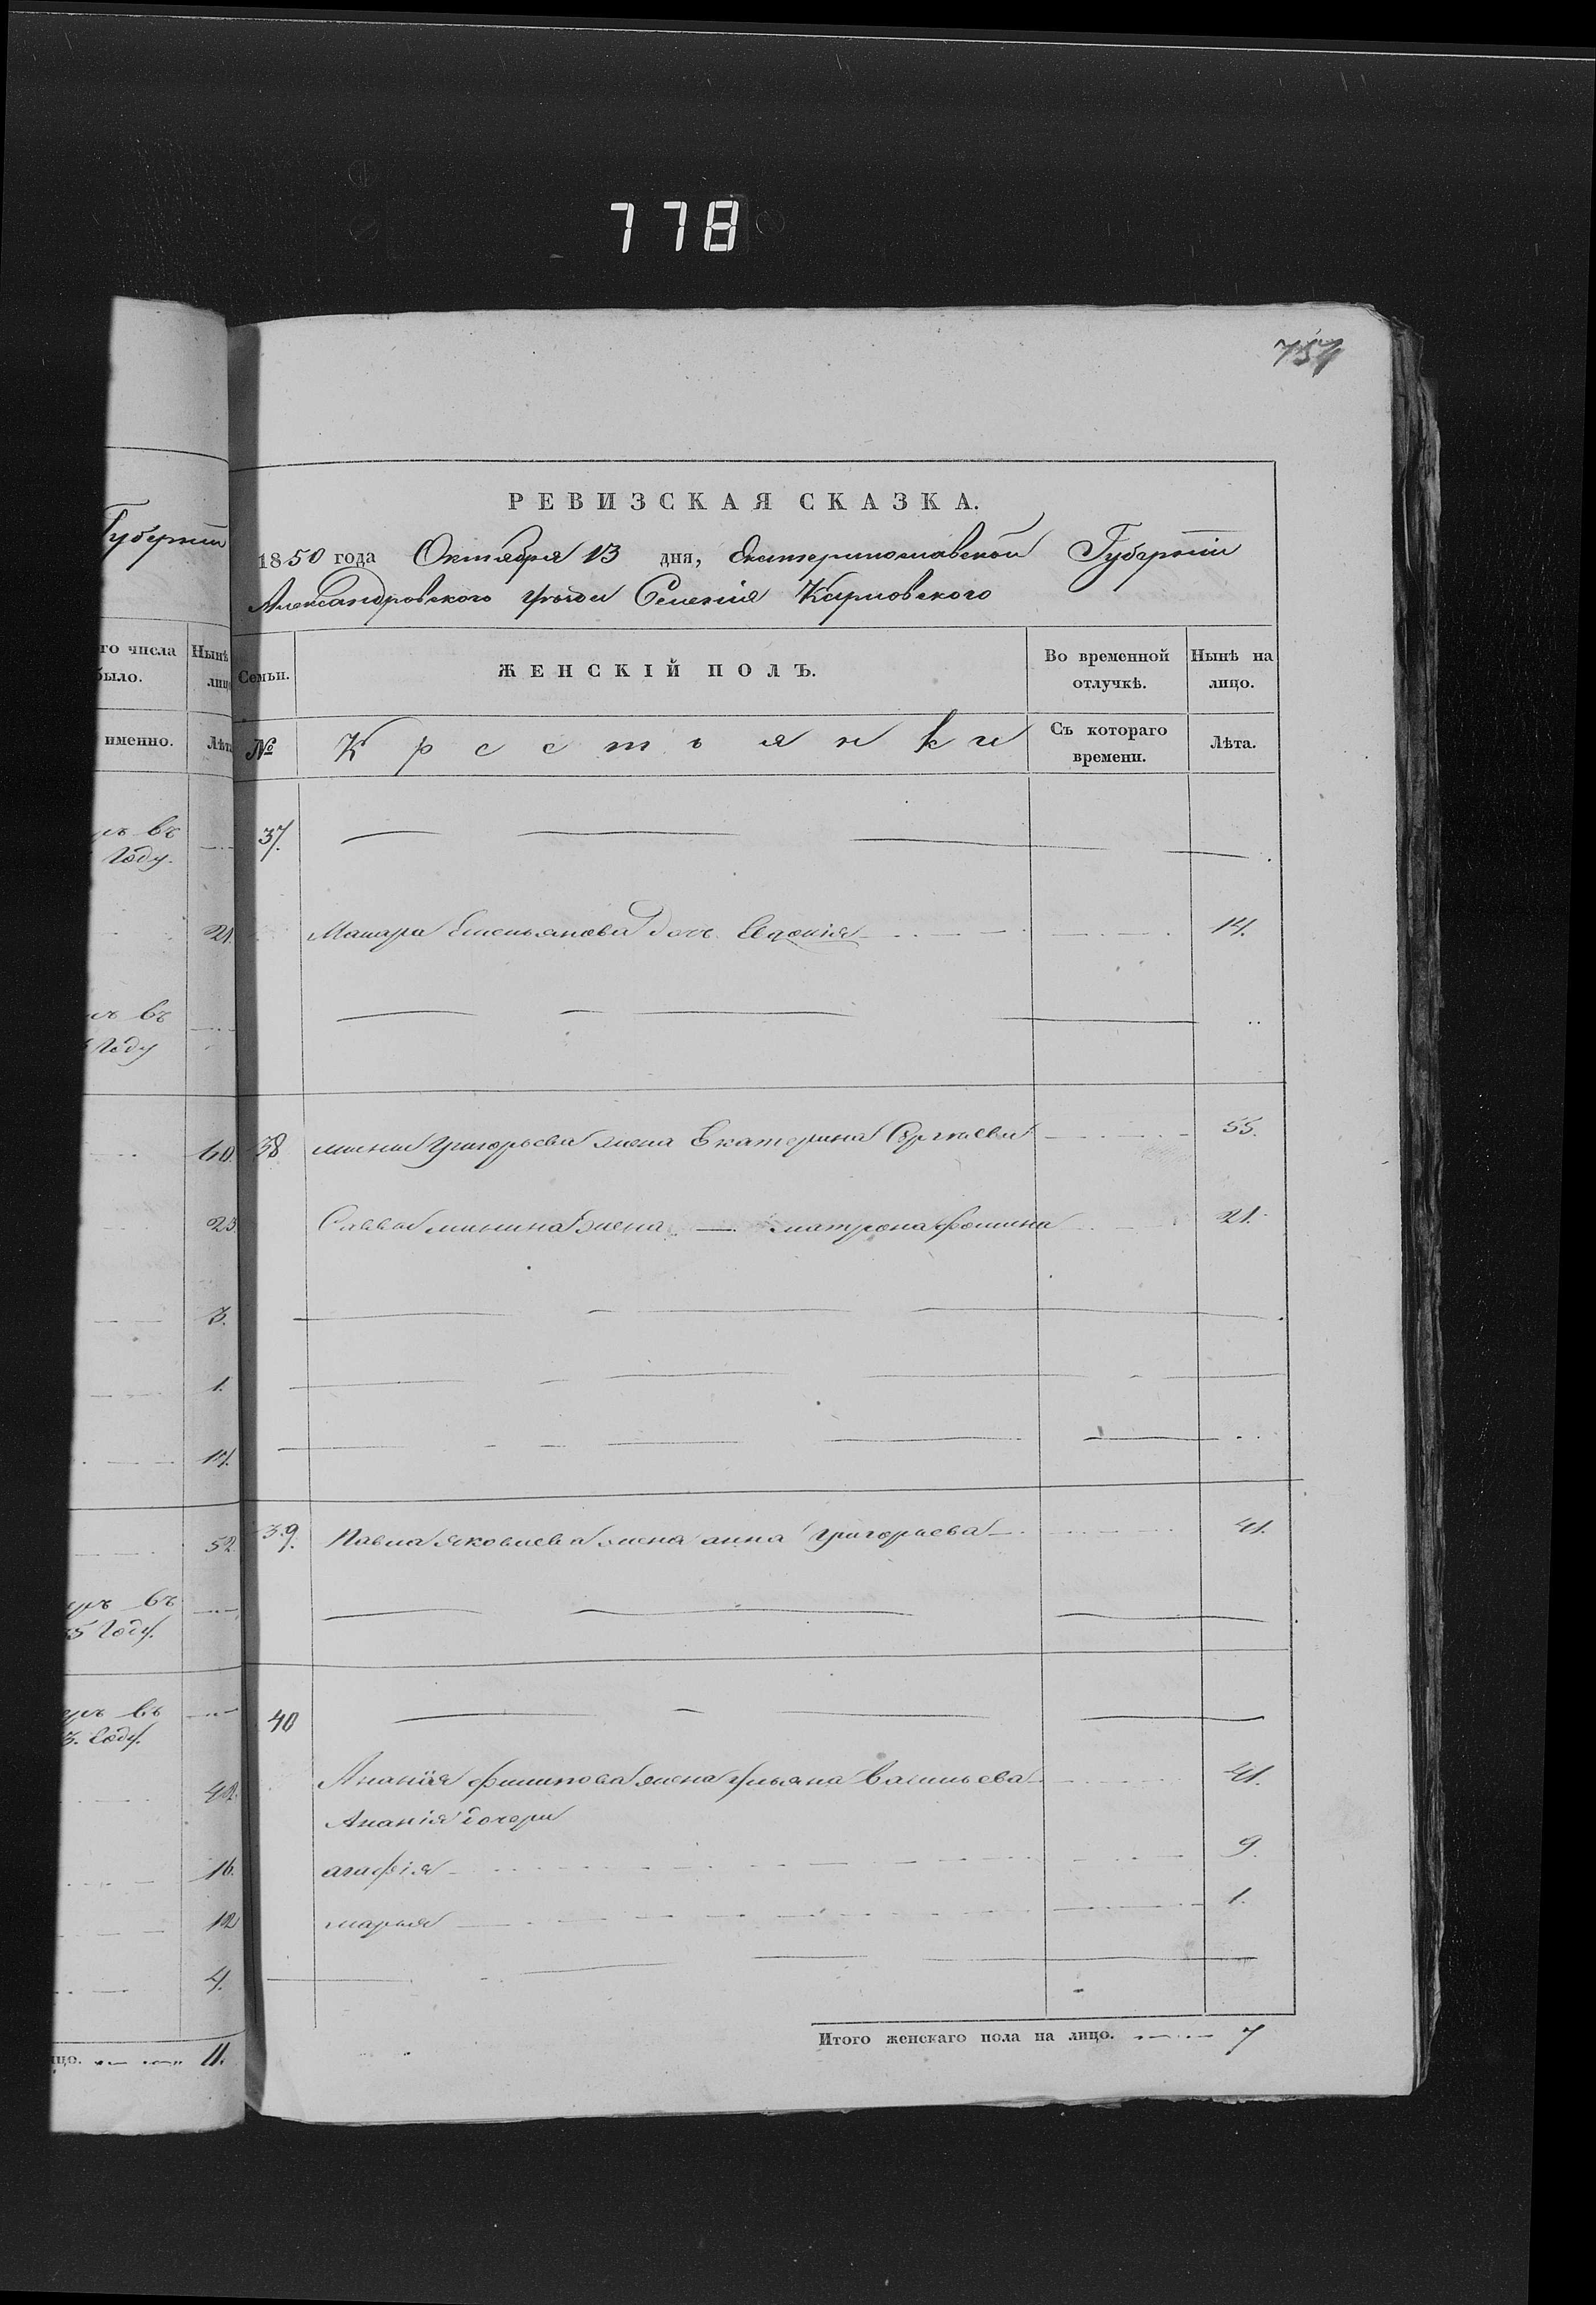 778
757
РЕВИЗСКАЯ СКАЗКА.
1850 года Октября 13 дня, Екатеринославской Губернии
Александровского уезда Селения Кирповского
Губернии
го числа было. Нынѣ лиц
именно. Лѣт
Семьи. ЖЕНСКІЙ ПОЛЪ. Во временной отлучкѣ. Нынѣ на лицо.
№ Крестьянки Съ котораго времени. Лѣта.
въ
Году.
37.
21. Макара Емельянова дочь Евдокія 14.
въ
Году
60. 38 мини Григорьева жена Екатерина Сергѣева 55.
23. Саввы минина жена матрона фомина 21.
3.
1.
17.
52. 39. Павла яковлева жена анна григорьева 41.
въ
35 Году.
въ
3. Году.
40
42. Ананія филипова жена ульяна васильева 41.
Ананія дочери
16. агафія 9.
12 марья 1.
4.
цо. 11.
Итого женскаго пола на лицо. 7